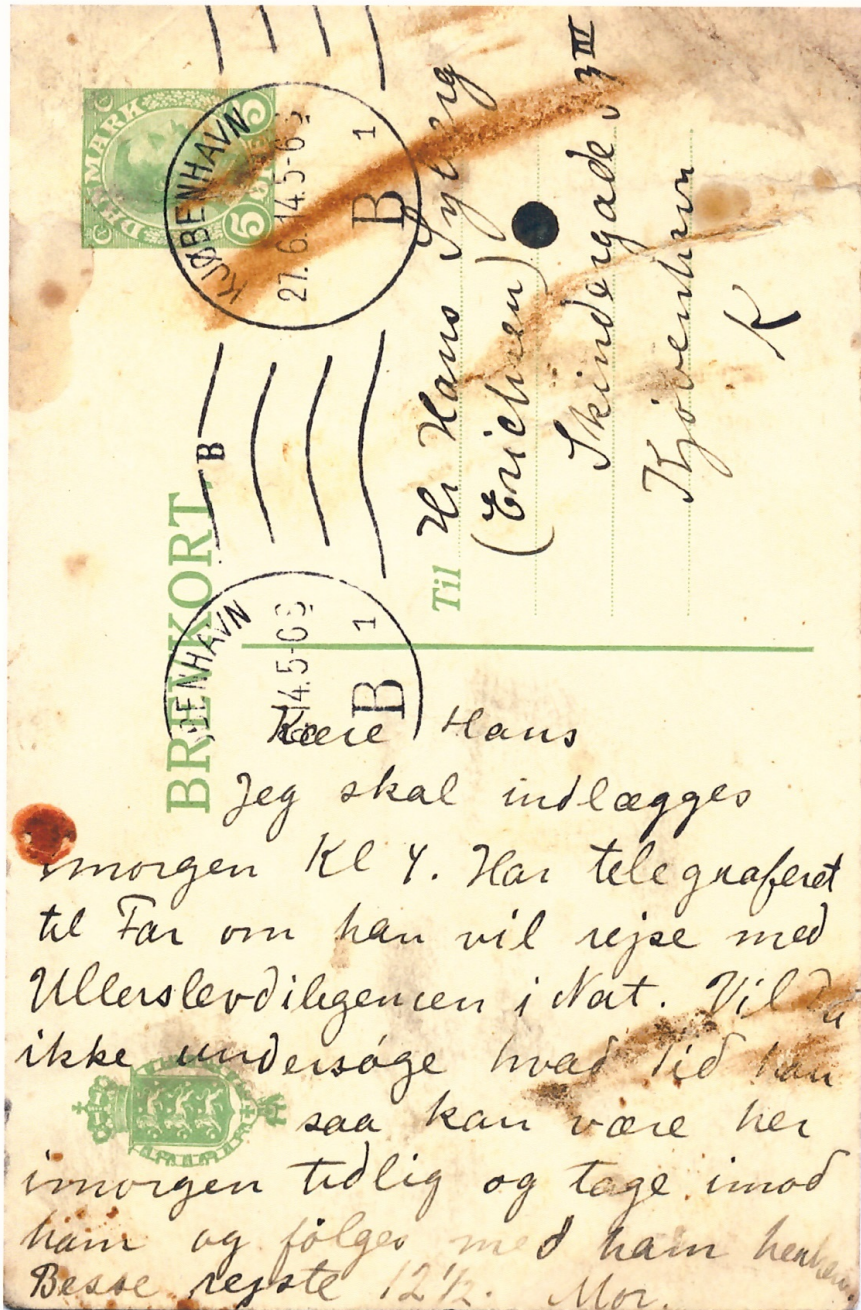 DANMARK
5 5
KJØBENHAVN
27.6.14.5-6
B
1
B
BENHAVN
14.5-6
B
1
BREVKORT
Til Hr Hans Syberg
(Erichsen)
Skindergade
Kjøbenhavn
K
Kære Hans
Jeg skal indlægges
imorgen Kl 4. Har telegraferet
til Far om han vil rejse med
Ullerslevdiligencen i Nat. Vil Du
ikke undersøge hvad Tid han
saa kan være her
imorgen tidlig og tage imod
ham og følges med ham
Besse rejste 12½. Mor.